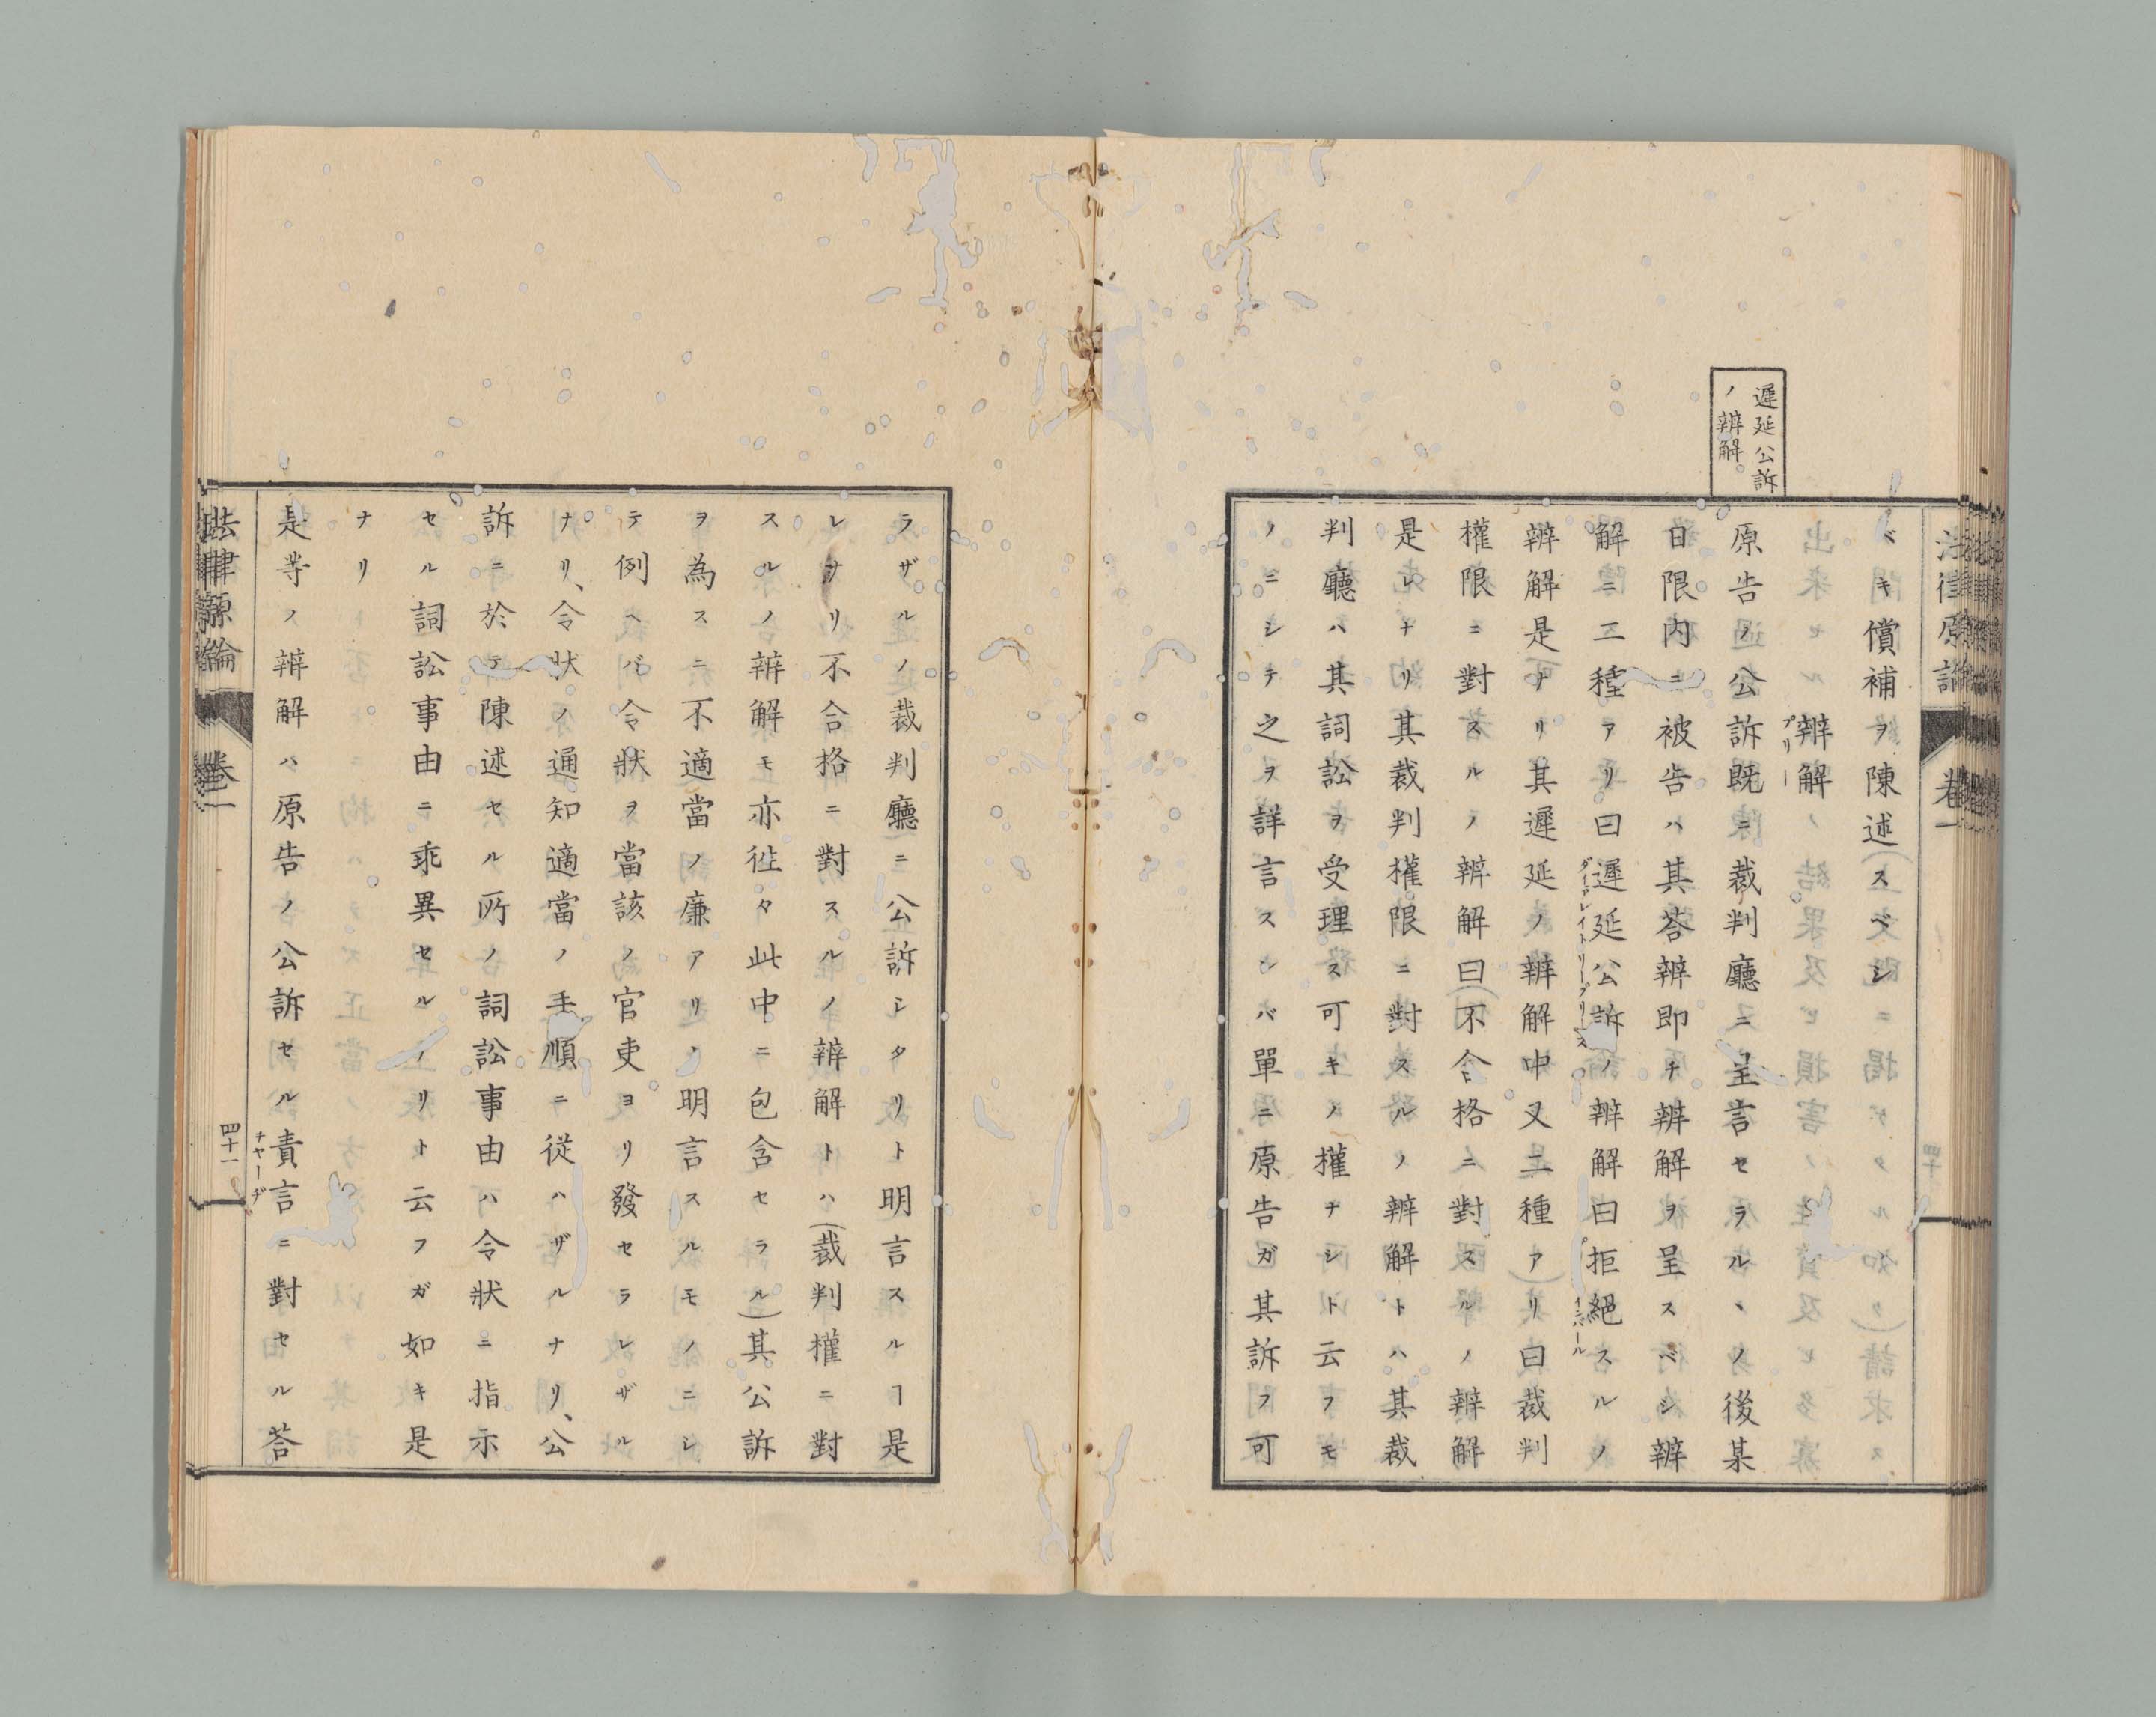 遲延公訴
ノ辨解
ベキ償補ヲ陳述スベシ
辨解
プリー
原告ノ公訴既ニ裁判廳ニ呈言セラルヽノ後某
日限内ニ被告ハ其荅辨即チ辨解ヲ呈スベシ辨
解ニ二種アリ曰遲延公訴ノ辨解曰拒絕スルノ
ダイアレイトリープリース
インバール
辨解是ナリ其遲延ノ辨解中又二種アリ曰裁判
權限ニ對スルノ辨解曰不合格ニ對スルノ辨解
是レナリ其裁判權限ニ對スルノ辨解トハ其裁
判廳ハ其詞訟ヲ受理ス可キノ權ナシト云フモ
ノニシテ之ヲ詳言スレバ單ニ原告ガ其訴フ可
法律原論
卷一
ラザルノ裁判廳ニ公訴シタリト明言スルヿ是
レナリ不合格ニ對スルノ辨解トハ(裁判權ニ對
スルノ辨解モ亦徃々此中ニ包含セラル)其公訴
ヲ為スニ不適當ノ廉アリト明言スルモノニシ
テ例ヘバ令狀ヲ當該ノ官吏ヨリ發セラレザル
ナリ、令狀ノ通知適當ノ手順ニ從ハザルナリ、公
訴ニ於テ陳述セル所ノ詞訟事由ハ令狀ニ指示
セル詞訟事由ニ乖異セルナリト云フガ如キ是
ナリ
是等ノ辨解ハ原告ノ公訴セル責言ニ對セル荅
チャーヂ
法律原論
卷一
四十一